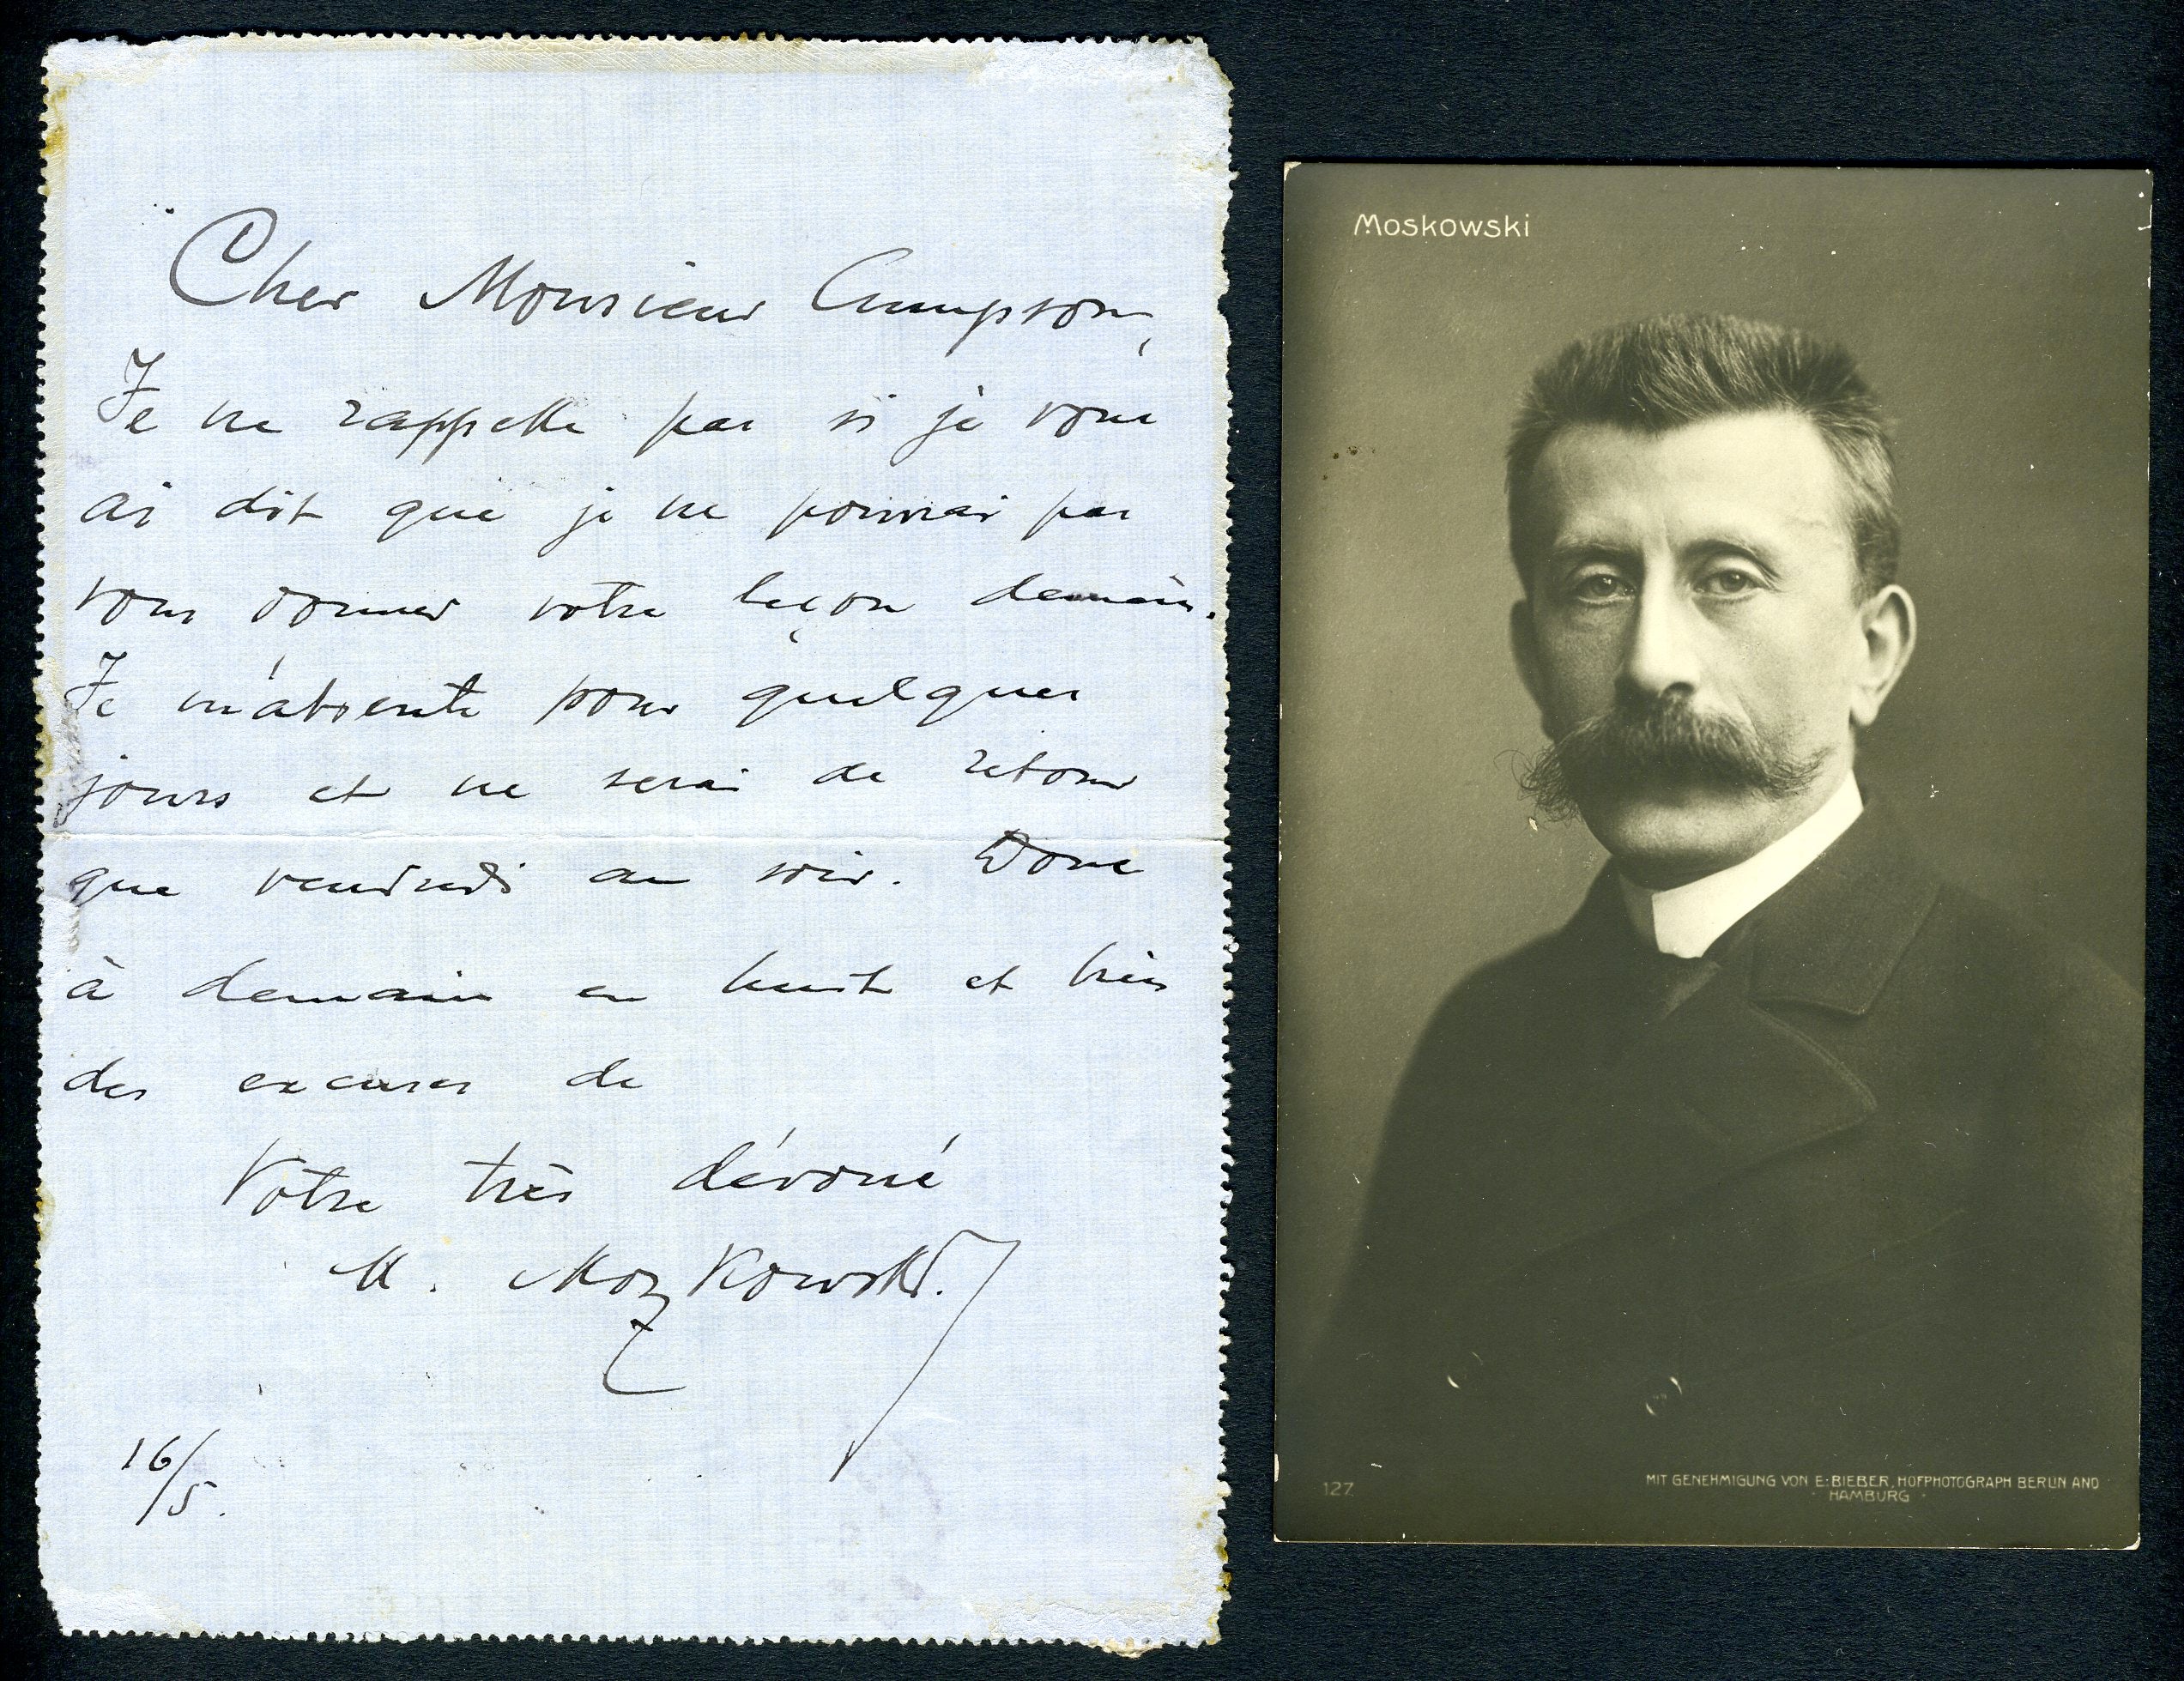 Cher Monsieur Cumpson,
Je ne rappelle pas si je vous
ai dit que je ne pourrai pas
vous donner votre leçon demain.
Je m'absente pour quelques
jours et ne serai de retour
que vendredi au soir. Donc
à demain en huit et bien
des excuses de
Votre très dévoué
M. Moszkowski.
16/5.
Moskowski
127.
MIT GENEHMIGUNG VON E. BIEBER, HOFPHOTOGRAPH BERLIN AND
HAMBURG